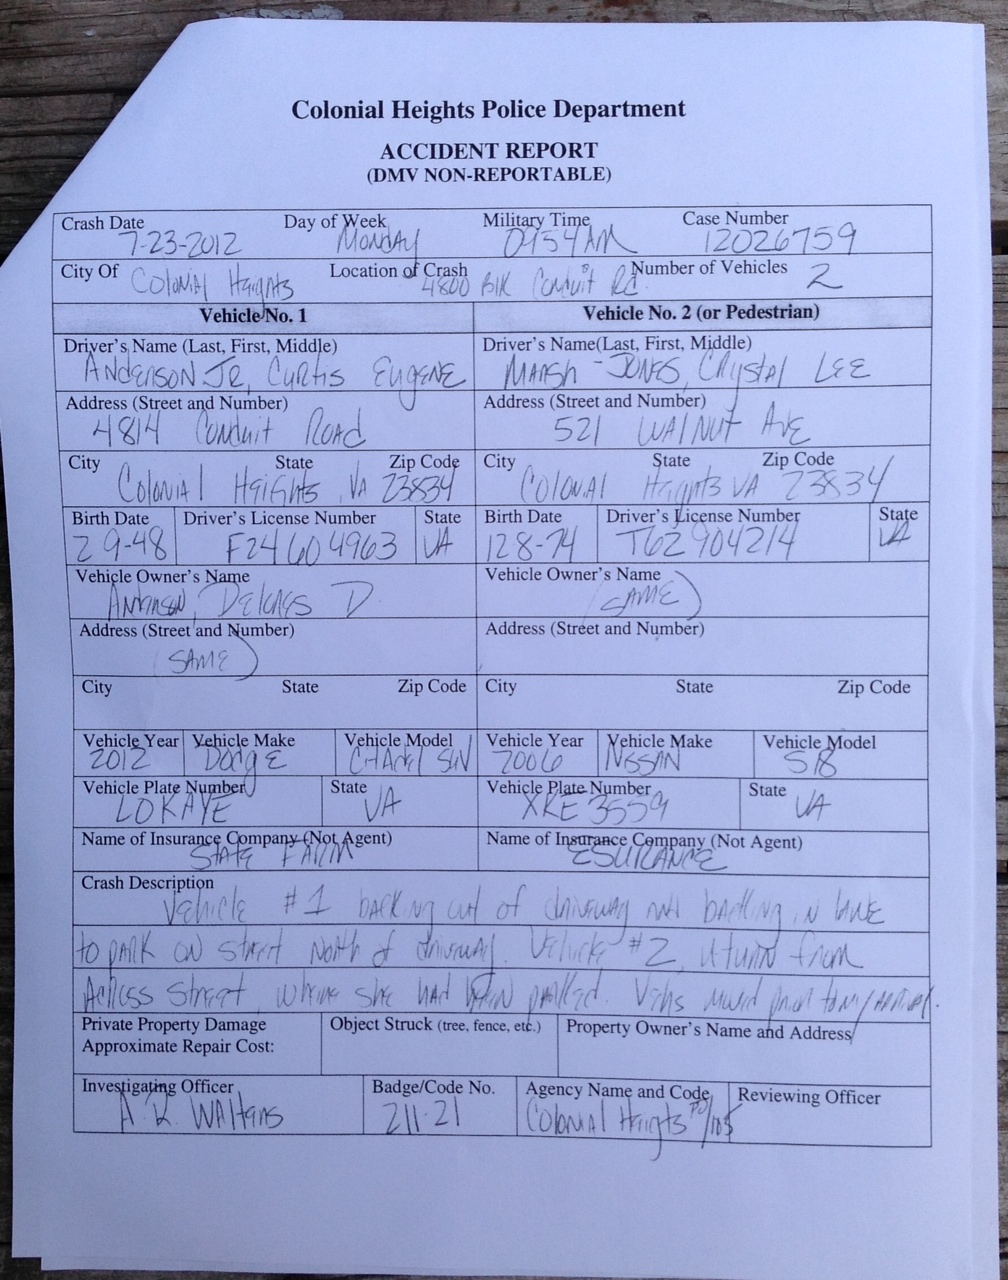 Colonial Heights Police Department
ACCIDENT REPORT
(DMV NON-REPORTABLE)
Crash Date Day of Week Military Time Case Number
7-23-2012 Monday 0954AM 12026759
City Of Colonial Heights Location of Crash 4800 Blk Conduit Rd. Number of Vehicles 2
Vehicle No. 1 Vehicle No. 2 (or Pedestrian)
Driver's Name (Last, First, Middle) Driver's Name(Last, First, Middle)
Anderson Jr, Curtis Eugene Marsh-Jones, Crystal Lee
Address (Street and Number) Address (Street and Number)
4814 Conduit Road 521 Walnut Ave
City State Zip Code City State Zip Code
Colonial Heights, VA 23834 Colonial Heights VA 23834
Birth Date Driver's License Number State Birth Date Driver's License Number State
2 9-48 F24604963 VA 12 8-74 T62904214 VA
Vehicle Owner's Name Vehicle Owner's Name
Delores D. (SAME)
Address (Street and Number) Address (Street and Number)
(SAME)
City State Zip Code City State Zip Code
Vehicle Year Vehicle Make Vehicle Model Vehicle Year Vehicle Make Vehicle Model
2012 Dodge 2006 Nissan
Vehicle Plate Number State Vehicle Plate Number State
LOKAYE VA XKE 3559 VA
Name of Insurance Company (Not Agent) Name of Insurance Company (Not Agent)
State Farm Esurance
Crash Description
Vehicle #1 backing out of driveway and backing in lane
to park on street North of driveway. Vehicle #2, uturn from
Across street, where she had been parked. Vehs moved prior to my arrival.
Private Property Damage Object Struck (tree, fence, etc.) Property Owner's Name and Address
Approximate Repair Cost:
Investigating Officer Badge/Code No. Agency Name and Code Reviewing Officer
A. R. Walters 211-21 Colonial Heights PD/105